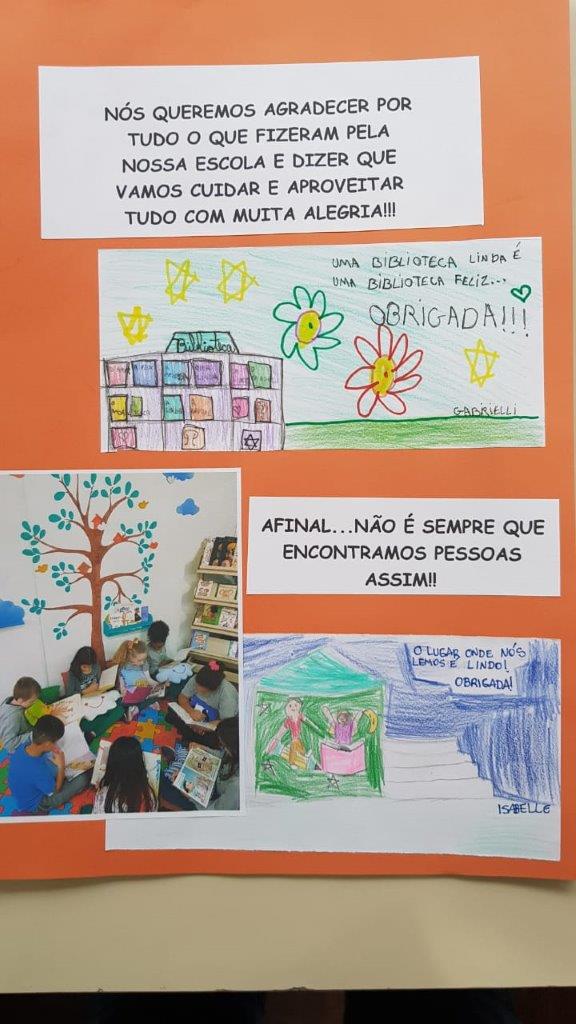 NÓS QUEREMOS AGRADECER POR
TUDO O QUE FIZERAM PELA
NOSSA ESCOLA E DIZER QUE
VAMOS CUIDAR E APROVEITAR
TUDO COM MUITA ALEGRIA!!!
UMA BIBLIOTECA LINDA É
UMA BIBLIOTECA FELIZ...
OBRIGADA!!!
Biblioteca
GABRIELLI
AFINAL...NÃO É SEMPRE QUE
ENCONTRAMOS PESSOAS
ASSIM!!
O LUGAR ONDE NÓS
LEMOS E LINDO!
OBRIGADA!
ISABELLE